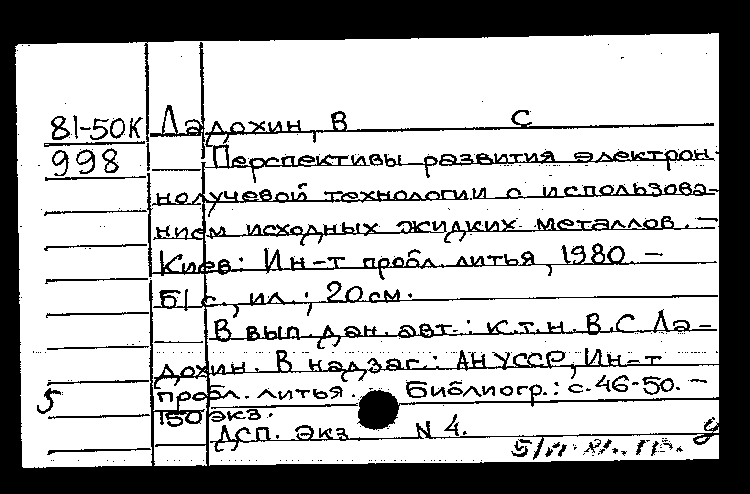 81-50К Ладохин, В С
998 Перспективы развития электрон-
нолучевой технологии с использова-
нием исходных жидких металлов. –
Киев: Ин-т пробл. литья, 1980 –
51 с., ил.; 20 см.
В вып. дан. авт.: к.т.н. В.С Ла-
дохин. В надзаг.: АН УССР, Ин-т
пробл. литья. Библиогр.: с.46-50. –
5 150 экз.
ДСП. Экз N 4.